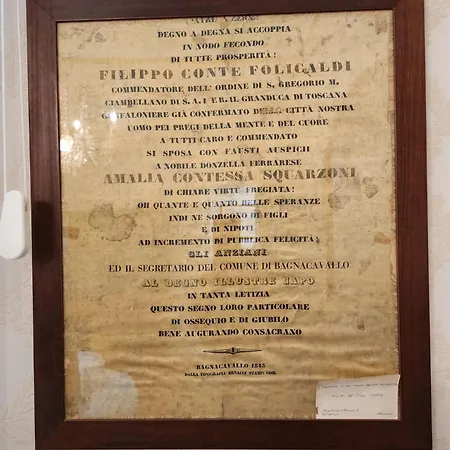 DEGNO A DEGNA SI ACCOPPIA
IN NODO FECONDO
DI TUTTE PROSPERITÀ!
FILIPPO CONTE FOLICALDI
COMMENDATORE DELL' ORDINE DI S. GREGORIO M.
CIAMBELLANO DI S. A. I E R. IL GRANDUCA DI TOSCANA
GONFALONIERE GIÀ CONFERMATO DELLA CITTÀ NOSTRA
UOMO PEI PREGI DELLA MENTE E DEL CUORE
A TUTTI CARO E COMMENDATO
SI SPOSA CON FAUSTI AUSPICII
A NOBILE DONZELLA FERRARESE
AMALIA CONTESSA SQUARZONI
DI CHIARE VIRTÙ FREGIATA!
OH QUANTE E QUANTO BELLE SPERANZE
INDI NE SORGONO DI FIGLI
E DI NIPOTI
AD INCREMENTO DI PUBBLICA FELICITÀ!
GLI ANZIANI
ED IL SEGRETARIO DEL COMUNE DI BAGNACAVALLO
AL DEGNO ILLUSTRE CAPO
IN TANTA LETIZIA
QUESTO SEGNO LORO PARTICOLARE
DI OSSEQUIO E DI GIUBILO
BENE AUGURANDO CONSACRANO
BAGNACAVALLO 1845
DALLA TIPOGRAFIA